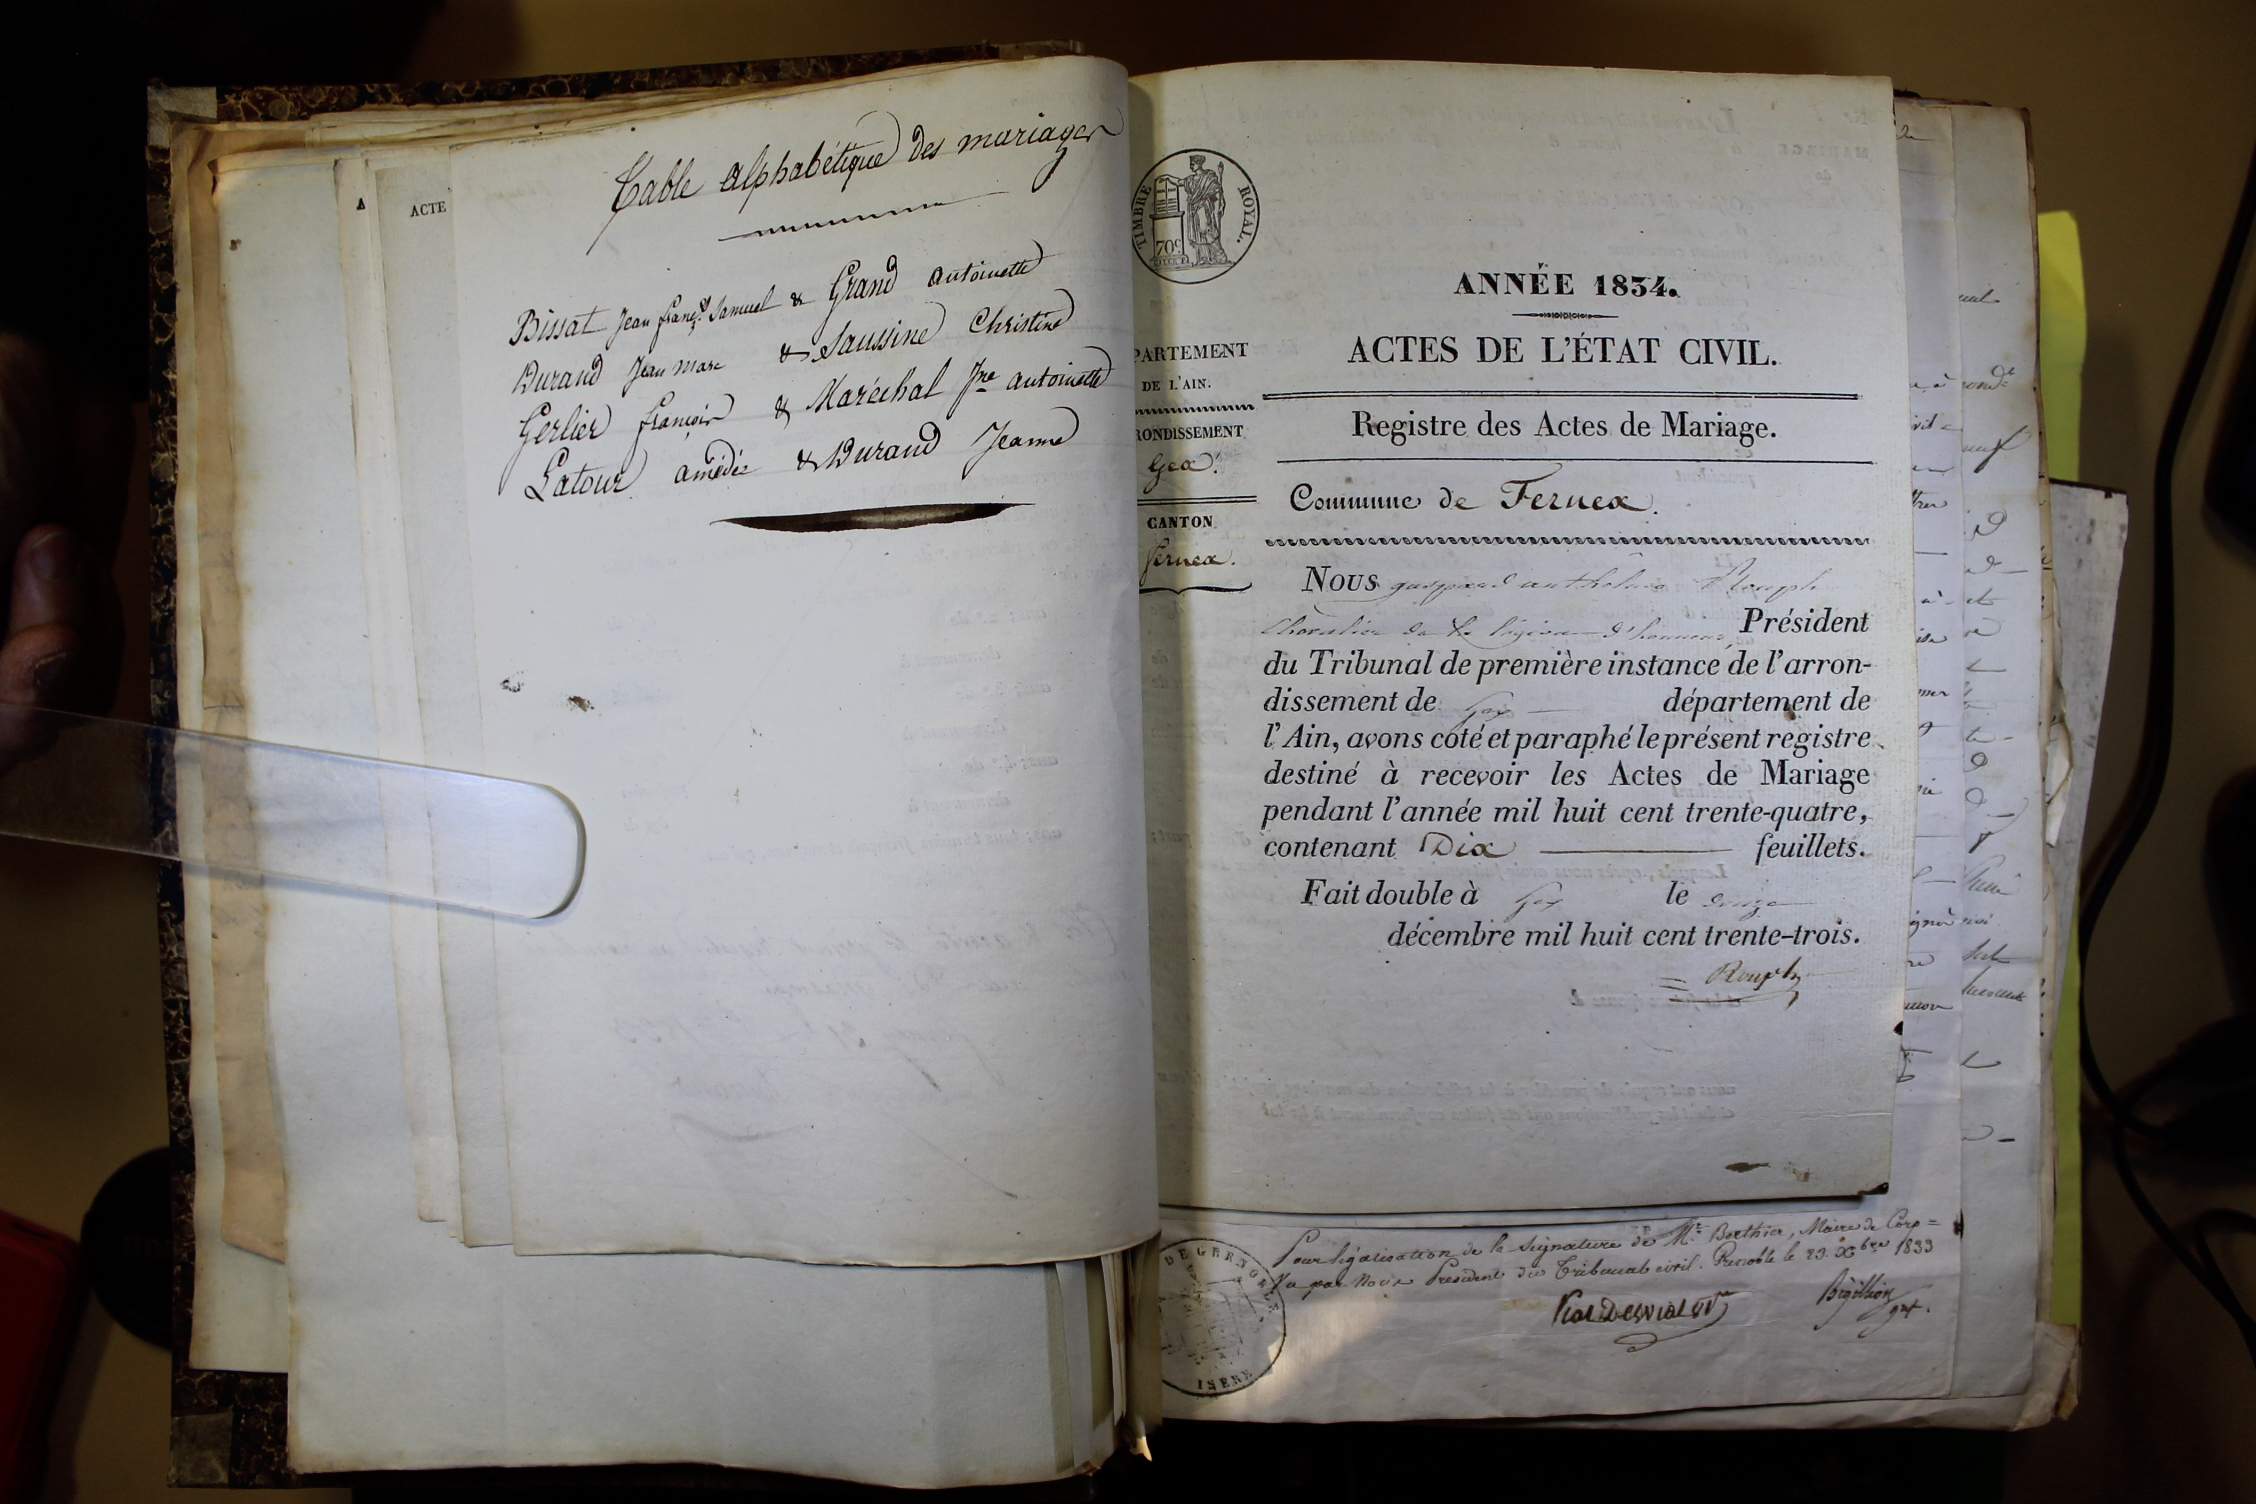 Table alphabétique des mariages
Bissat Jean franç.s Samuel & Grand antoinette
Durand Jean Marc & Saussine Christine
Gerlier françois & Maréchal Jne antoinette
Latour amédée & Durand Jeanne
A
ACTE
TIMBRE ROYAL.
70c
PARTEMENT
DE L'AIN.
RONDISSEMENT
Gex.
CANTON
fernex.
ANNÉE 1834.
ACTES DE L'ÉTAT CIVIL.
Registre des Actes de Mariage.
Commune de Fernex.
Nous gaspard anthelme Rouph
Chevalier de la légion d'honneur, Président
du Tribunal de première instance de l'arron-
dissement de Gex département de
l'Ain, avons coté et paraphé le présent registre
destiné à recevoir les Actes de Mariage
pendant l'année mil huit cent trente-quatre,
contenant Dix feuillets.
Fait double à Gex le
décembre mil huit cent trente-trois.
Rouph
Pour légalisation de la signature de Mr. Berthier, Maire de Corp=
Vu par Nous Président du Tribunal civil. Grenoble le 23 Xbre 1833
DE GRENOBLE
ISERE